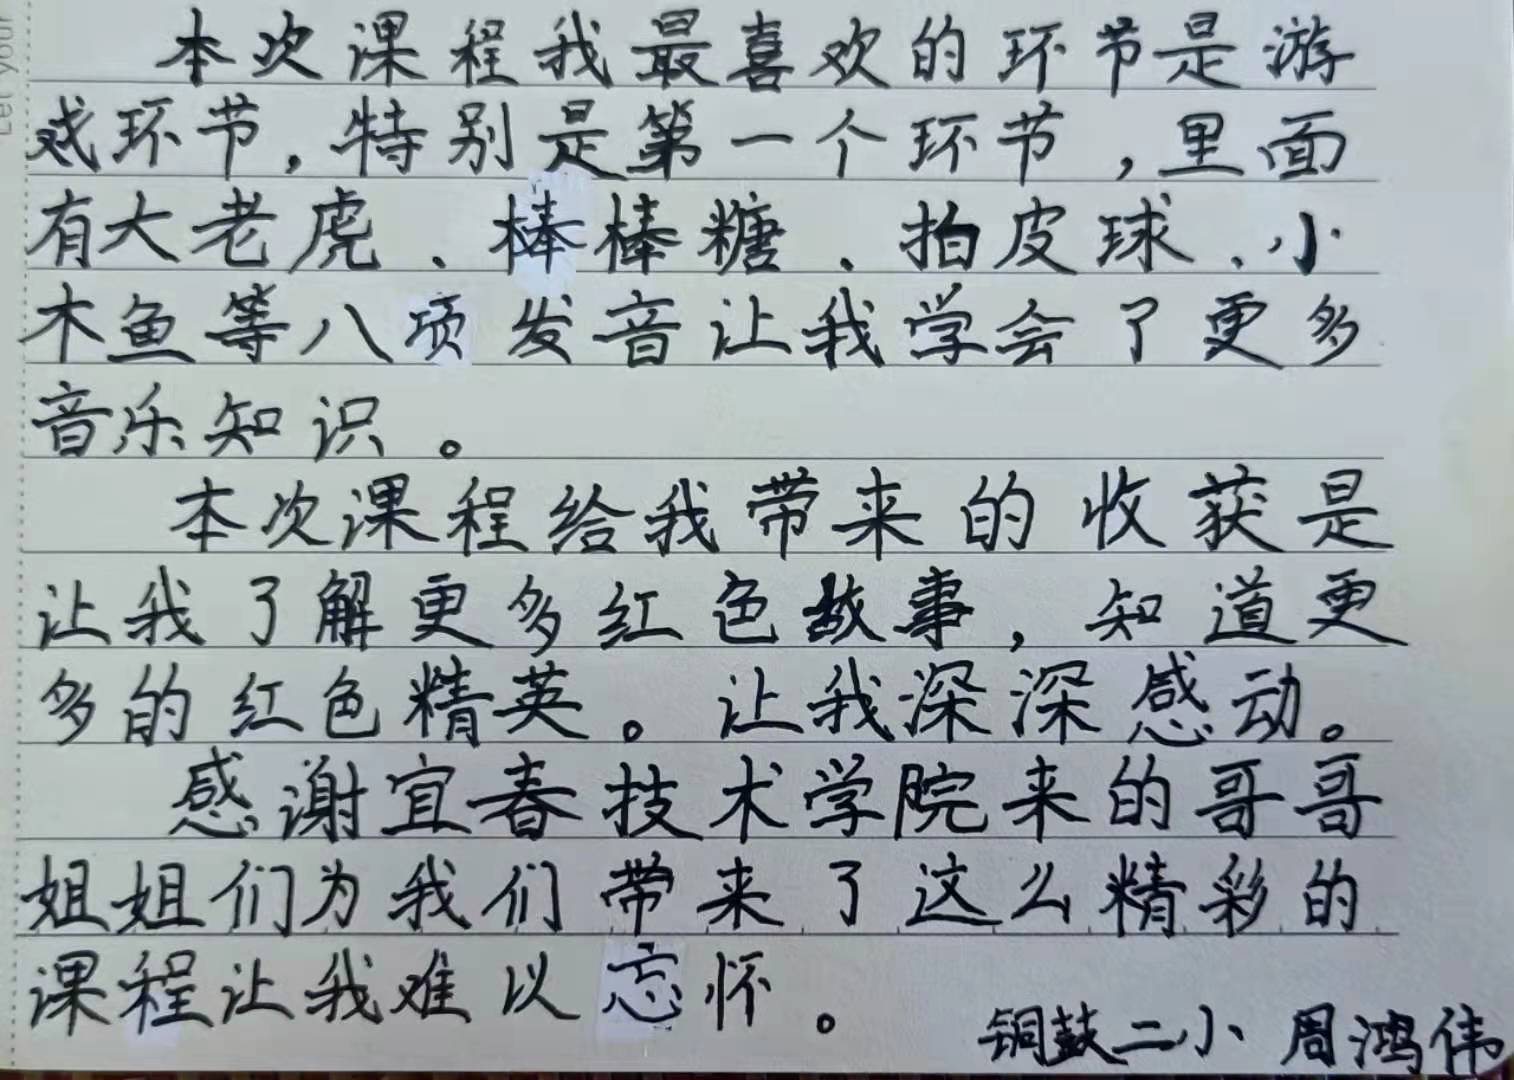 本次课程我最喜欢的环节是游
戏环节,特别是第一个环节,里面
有大老虎、棒棒糖、拍皮球、小
木鱼等八项发音让我学会了更多
音乐知识。
本次课程给我带来的收获是
让我了解更多红色故事,知道更
多的红色精英。让我深深感动。
感谢宜春技术学院来的哥哥
姐姐们为我们带来了这么精彩的
课程让我难以忘怀。
铜鼓二小 周鸿伟
Let your